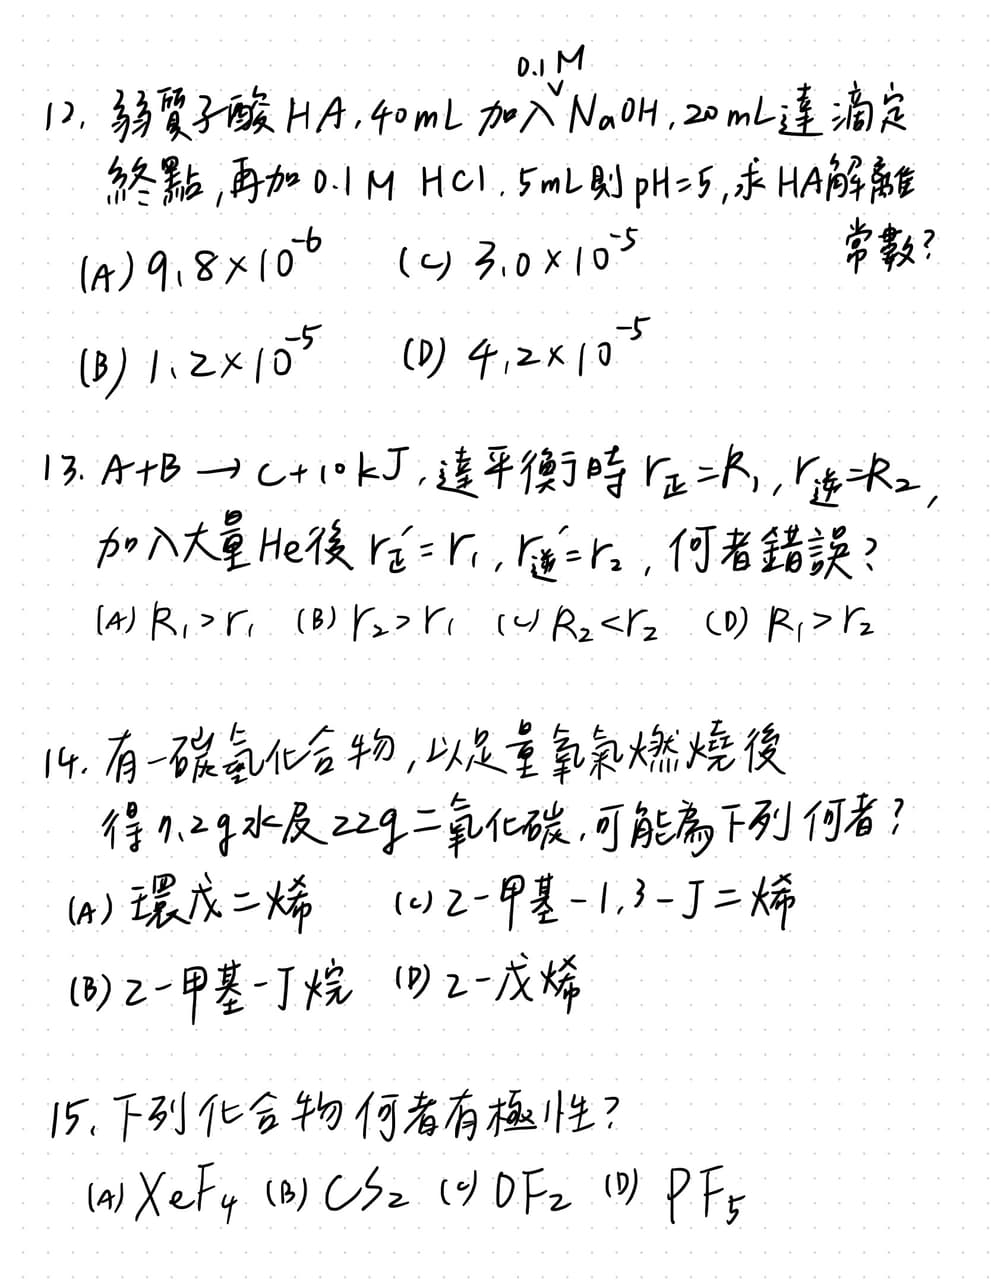 0.1M
12. 弱質子酸 HA, 40mL 加入 NaOH, 20mL達滴定
終點,再加 0.1M HCl, 5mL則 pH=5,求 HA解離
常數?
(A) 9.8×10⁻⁶ (C) 3.0×10⁻⁵
(B) 1.2×10⁻⁵ (D) 4.2×10⁻⁵
13. A+B → C+10kJ,達平衡時 r正=R₁, r逆=R₂,
加入大量He後 r正'=r₁, r逆'=r₂, 何者錯誤?
(A) R₁>r₁ (B) r₂>r₁ (C) R₂<r₂ (D) R₁>r₂
14. 有一碳氫化合物,以足量氧氣燃燒後
得7.2g水及22g二氧化碳,可能為下列何者?
(A) 環戊二烯 (C) 2-甲基-1,3-丁二烯
(B) 2-甲基-丁烷 (D) 2-戊烯
15. 下列化合物何者有極性?
(A) XeF₄ (B) CS₂ (C) OF₂ (D) PF₅